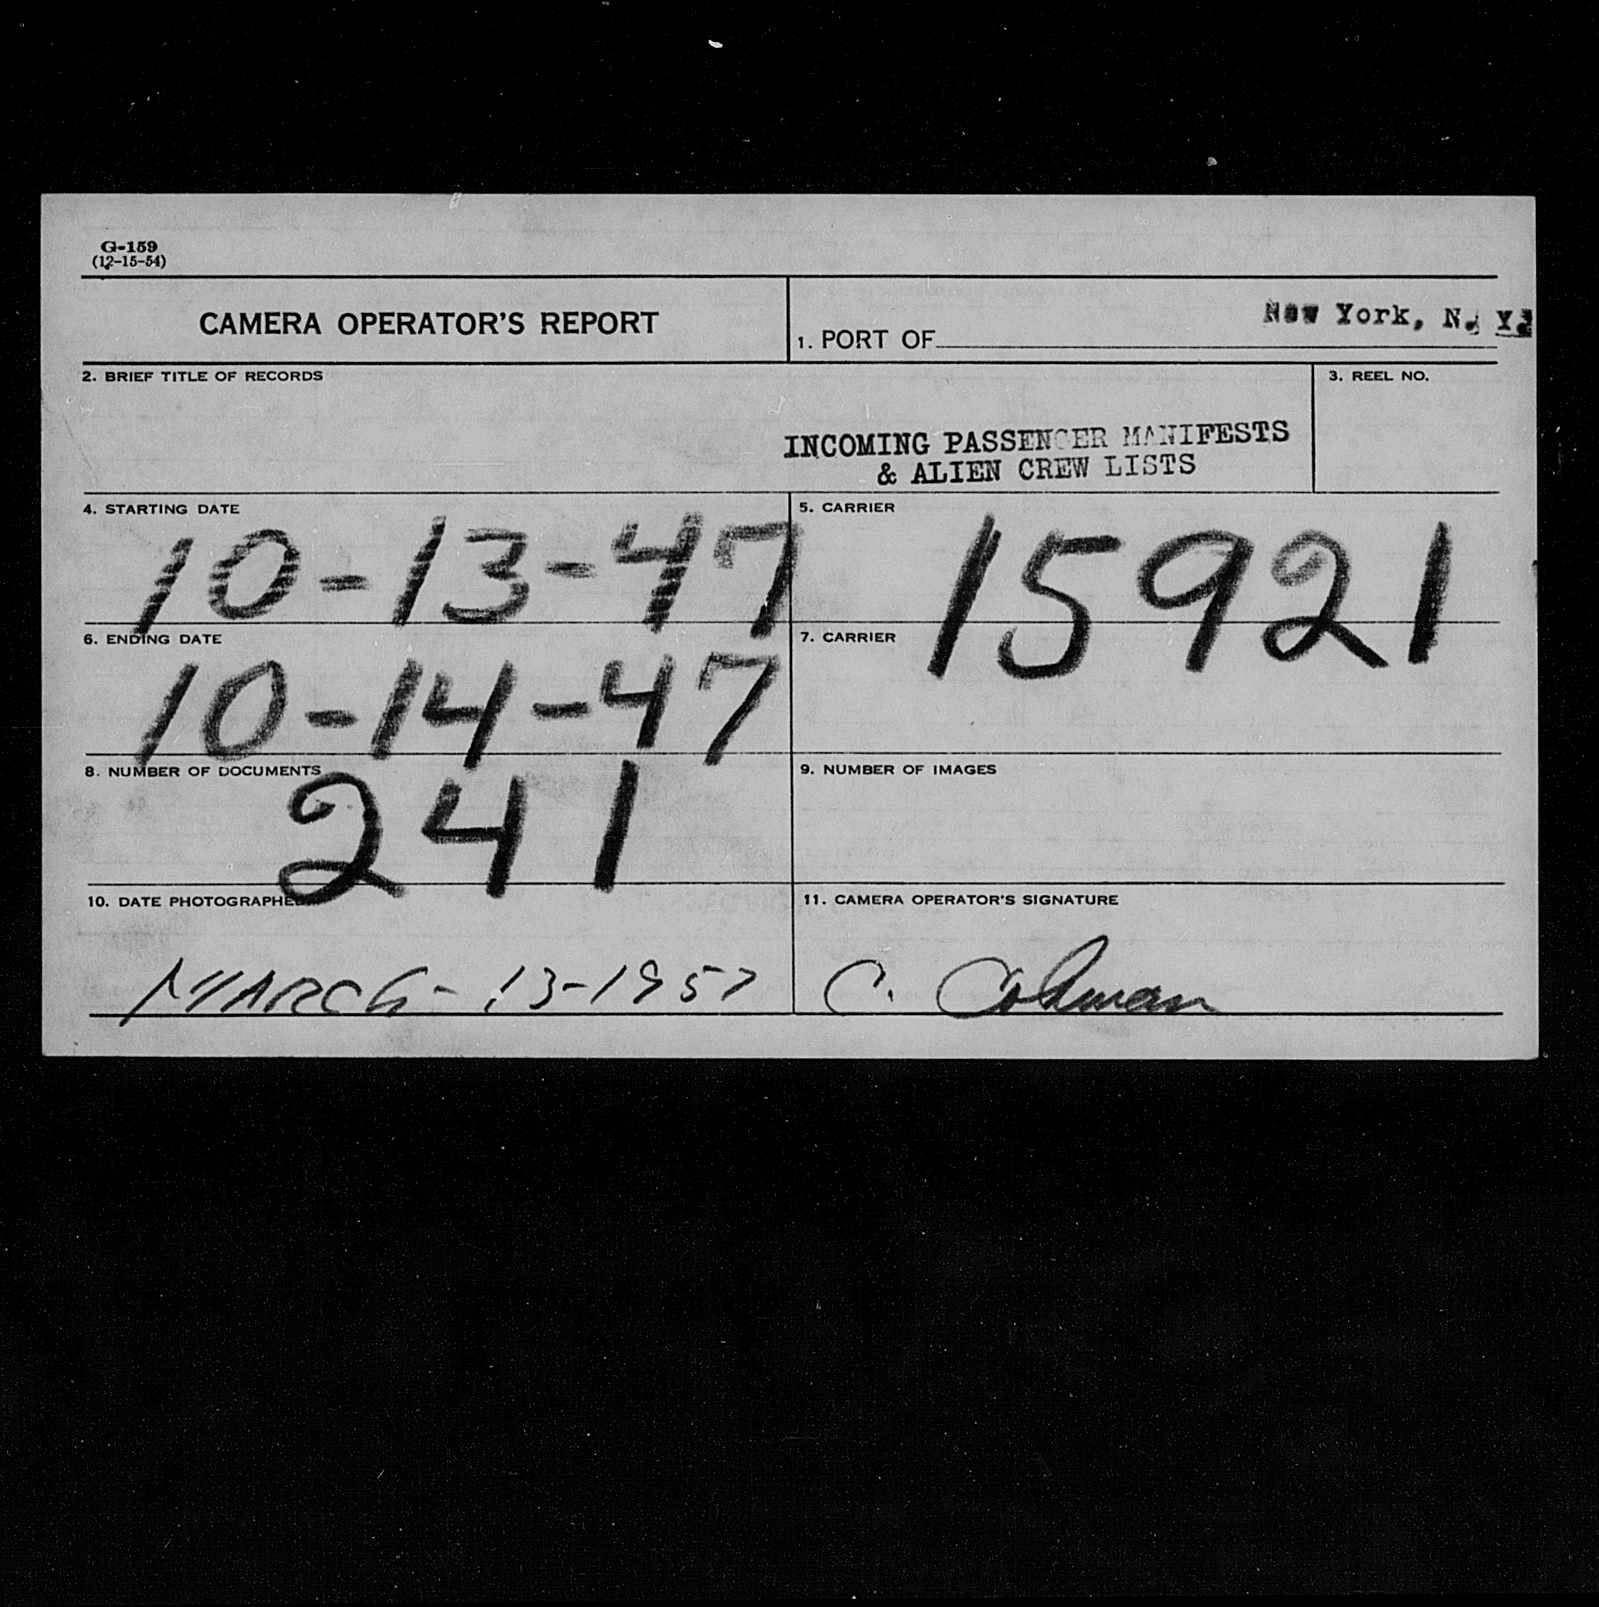 G-159
(12-15-54)
CAMERA OPERATOR'S REPORT
1. PORT OF New York, N. Y.
2. BRIEF TITLE OF RECORDS
3. REEL NO.
INCOMING PASSENGER MANIFESTS
& ALIEN CREW LISTS
4. STARTING DATE
10-13-47
5. CARRIER
15921
6. ENDING DATE
10-14-47
7. CARRIER
8. NUMBER OF DOCUMENTS
241
9. NUMBER OF IMAGES
10. DATE PHOTOGRAPHED
MARCH-13-1957
11. CAMERA OPERATOR'S SIGNATURE
C.